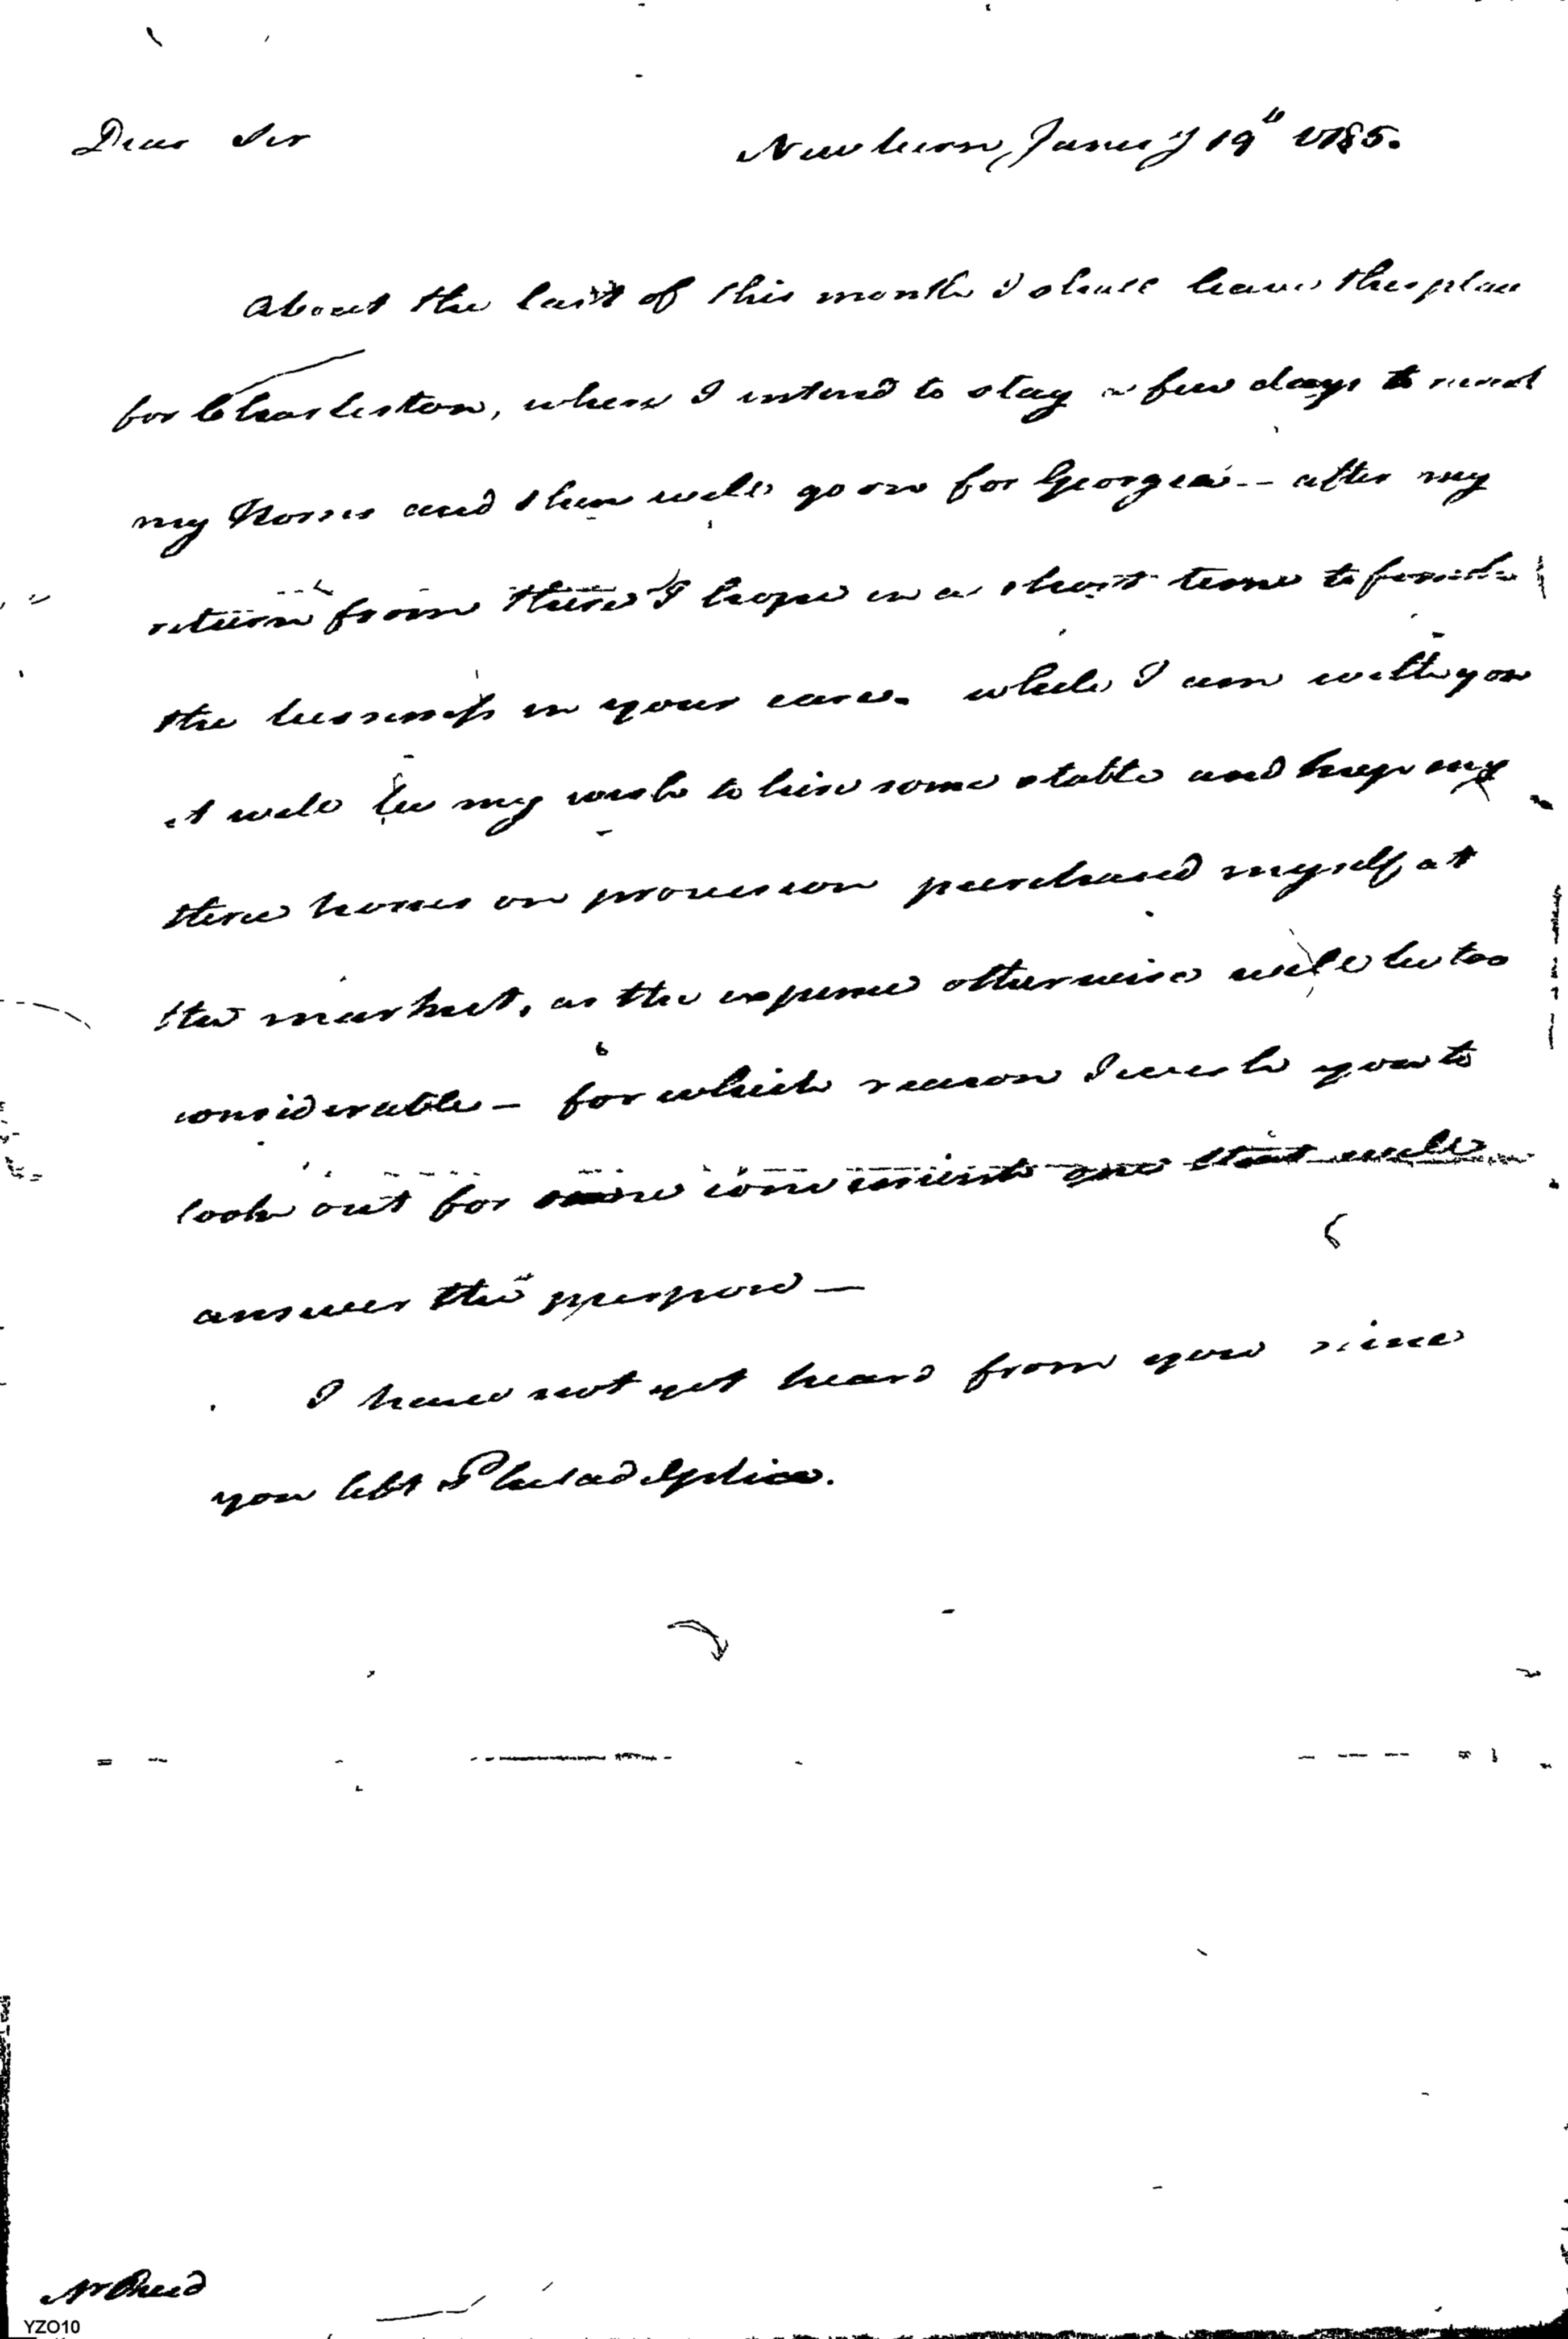 Dear Sir Newbern, Janu'y 19" 1785.
About the last of this month I shall leave this place
for Charleston, where I intend to stay a few days to recruit
my Horses and then will go on for Georgia -- after my
return from there I hope in a short time to finish
the business in your care. while I am with you
it will be my wish to hire some stable and keep my
three horses on provision purchased myself at
the market, as the expense otherwise will be too
considerable - for which reason I wish you to
look out for some convenient one that will
answer the purpose —
I have not yet heard from you since
you left Philadelphia.
Mr Reed
YZO10